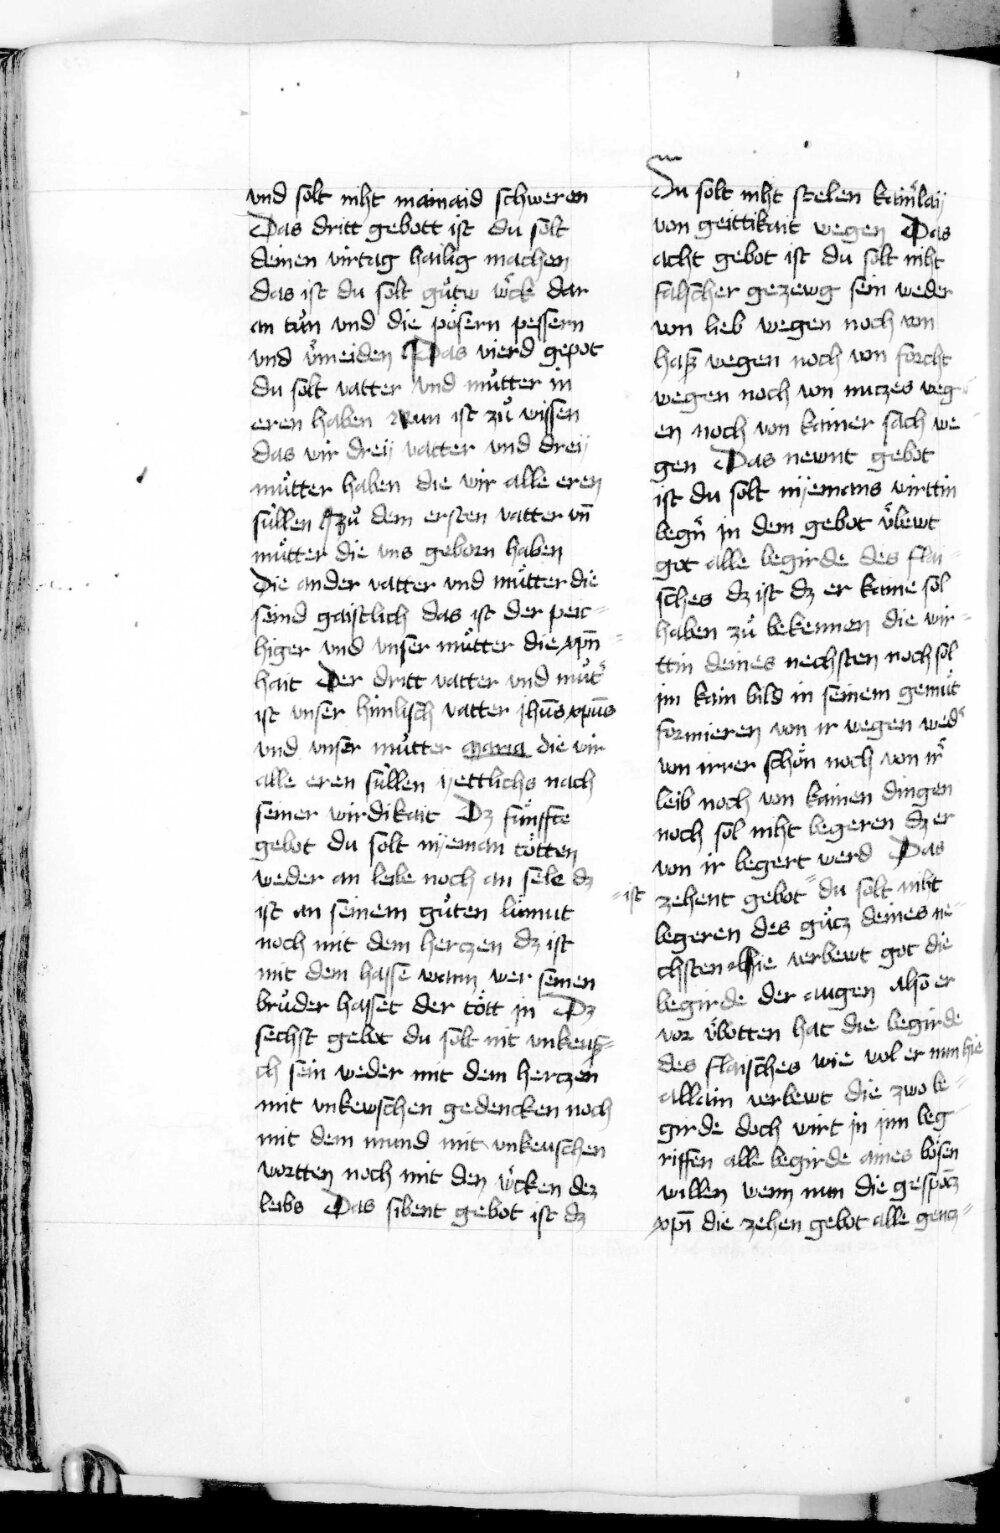 vnd solt niht mainaid schweren
Das dritt gebott ist du solt
deinen virtag hailig machen
das ist du solt gůtw wͤck dar
an tůn vnd die pösern pessern
vnd v̾meiden Das vierd gepot
du solt vatter vnd můtter in
eren haben Nun ist zů wissen
das wir dreÿ vatter vnd dreÿ
můtter haben die wir alle eren
süllen zů dem ersten vatter vn̄
můtter die vns geborn haben
Die ander vatter vnd můtter die
seind gaistlich das ist der peic=
higer vnd vnser můtter die xpn̄=
hait Der dritt vatter vnd můt̾
ist vnser himlisch vatter jhūs xpūs
vnd vnser můtter maria die wir
alle eren süllen yettlichs nach
seiner wirdikait Dz fünffte
gebot du solt nÿeman tötten
weder an leibe noch an sele dz
ist an seinem gůten lümut
noch mit dem hertzen dz ist
mit dem hasse wann wer seinen
brůder hasset der tött in Dz
sechst gebot du solt nit vnkeus=
ch sein weder mit dem hertzen
mit vnkewschen gedencken noch
mit dem mund mit vnkeuschen
wortten noch mit den wͤcken dez
leibs Das sibent gebot ist dz
Du solt niht stelen kain̾laÿ
von geittikait wegen Das
acht gebot ist du solt niht
falscher gezewg sein weder
von lieb wegen noch von
hasz wegen noch von forcht
wegen noch von nuczes weg
en noch von kainer sach we
gen Das newnt gebot
ist du solt nÿemans wirttin
beg̾n in dem gebot v̾bewt
got alle begirde des flai=
sches dz ist dz er kaine sol
haben zů bekennen die wir=
ttin deines nechsten noch sol
im kain bild in seinem gemüt
formieren von ir wegen wed̾
von irrer schön noch von ir̾
leib noch von kainen dingen
noch sol niht begeren dz er
von ir begert werd Das
zehent gebot =ist du solt niht
begeren des gůtz deines ne=
chsten Hie verbewt got die
begirde der augen Also er
vor v̾botten hat die begirde
des flaisches wie wol er nun hie
allain verbewt die zwo be=
girde doch wirt in jnn beg
riffen alle begirde aines bösen
willen wenn nun die gesponcz
xpi die zehen gebot alle gencz=